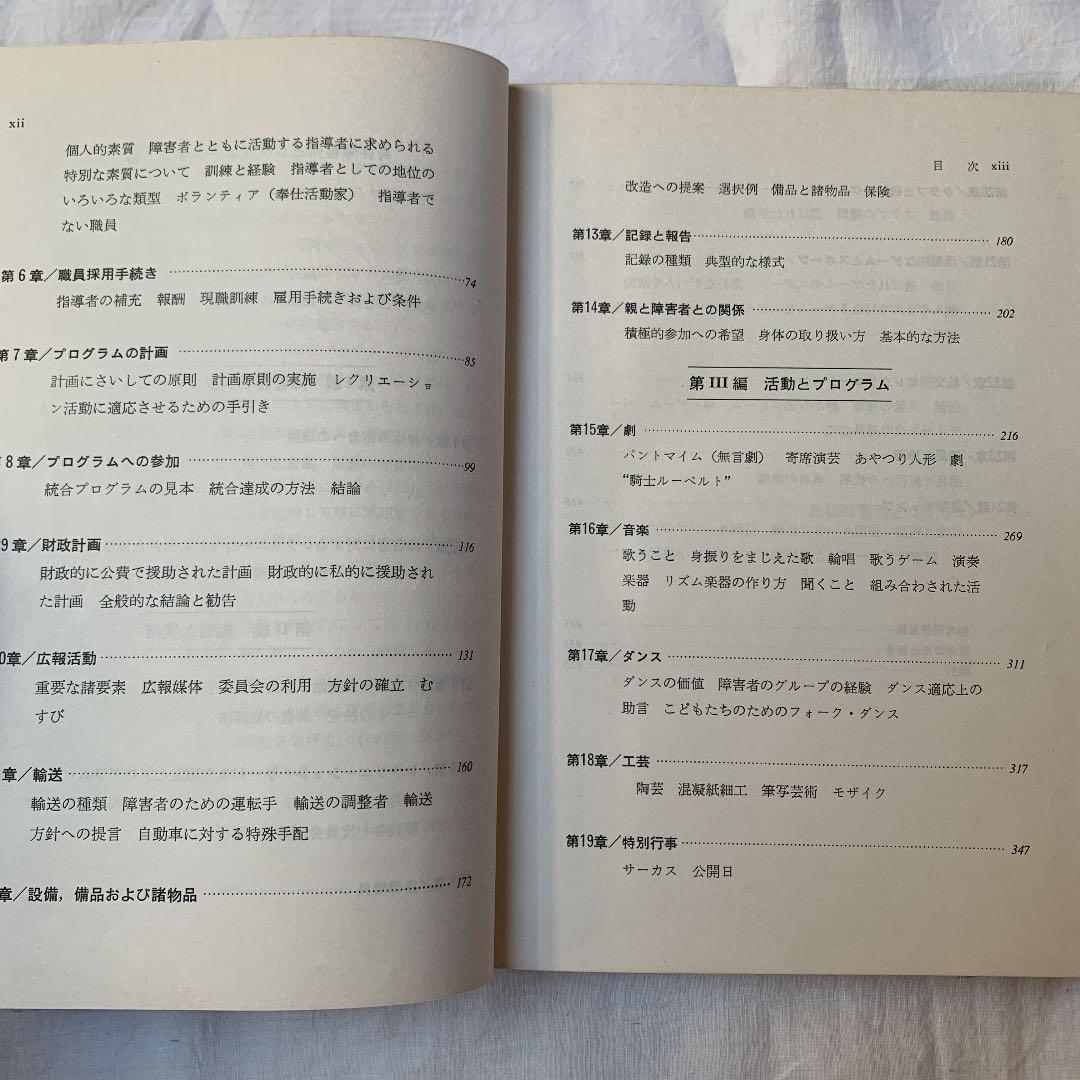 xii
個人的素質　障害者とともに活動する指導者に求められる
特別な素質について　訓練と経験　指導者としての地位の
いろいろな類型　ボランティア（奉仕活動家）　指導者で
ない職員
第6章／職員採用手続き……74
指導者の補充　報酬　現職訓練　雇用手続きおよび条件
第7章／プログラムの計画……85
計画にさいしての原則　計画原則の実施　レクリエーショ
ン活動に適応させるための手引き
8章／プログラムへの参加……99
統合プログラムの見本　統合達成の方法　結論
9章／財政計画……116
財政的に公費で援助された計画　財政的に私的に援助され
た計画　全般的な結論と勧告
0章／広報活動……131
重要な諸要素　広報媒体　委員会の利用　方針の確立　む
すび
章／輸送……160
輸送の種類　障害者のための運転手　輸送の調整者　輸送
方針への提言　自動車に対する特殊手配
章／設備，備品および諸物品……172
目　次　xiii
改造への提案　選択例　備品と諸物品　保険
第13章／記録と報告……180
記録の種類　典型的な様式
第14章／親と障害者との関係……202
積極的参加への希望　身体の取り扱い方　基本的な方法
第III編　活動とプログラム
第15章／劇……216
パントマイム（無言劇）　寄席演芸　あやつり人形　劇
“騎士ルーペルト”
第16章／音楽……269
歌うこと　身振りをまじえた歌　輪唱　歌うゲーム　演奏
楽器　リズム楽器の作り方　聞くこと　組み合わされた活
動
第17章／ダンス……311
ダンスの価値　障害者のグループの経験　ダンス適応上の
助言　こどもたちのためのフォーク・ダンス
第18章／工芸……317
陶芸　混凝紙細工　筆写芸術　モザイク
第19章／特別行事……347
サーカス　公開日